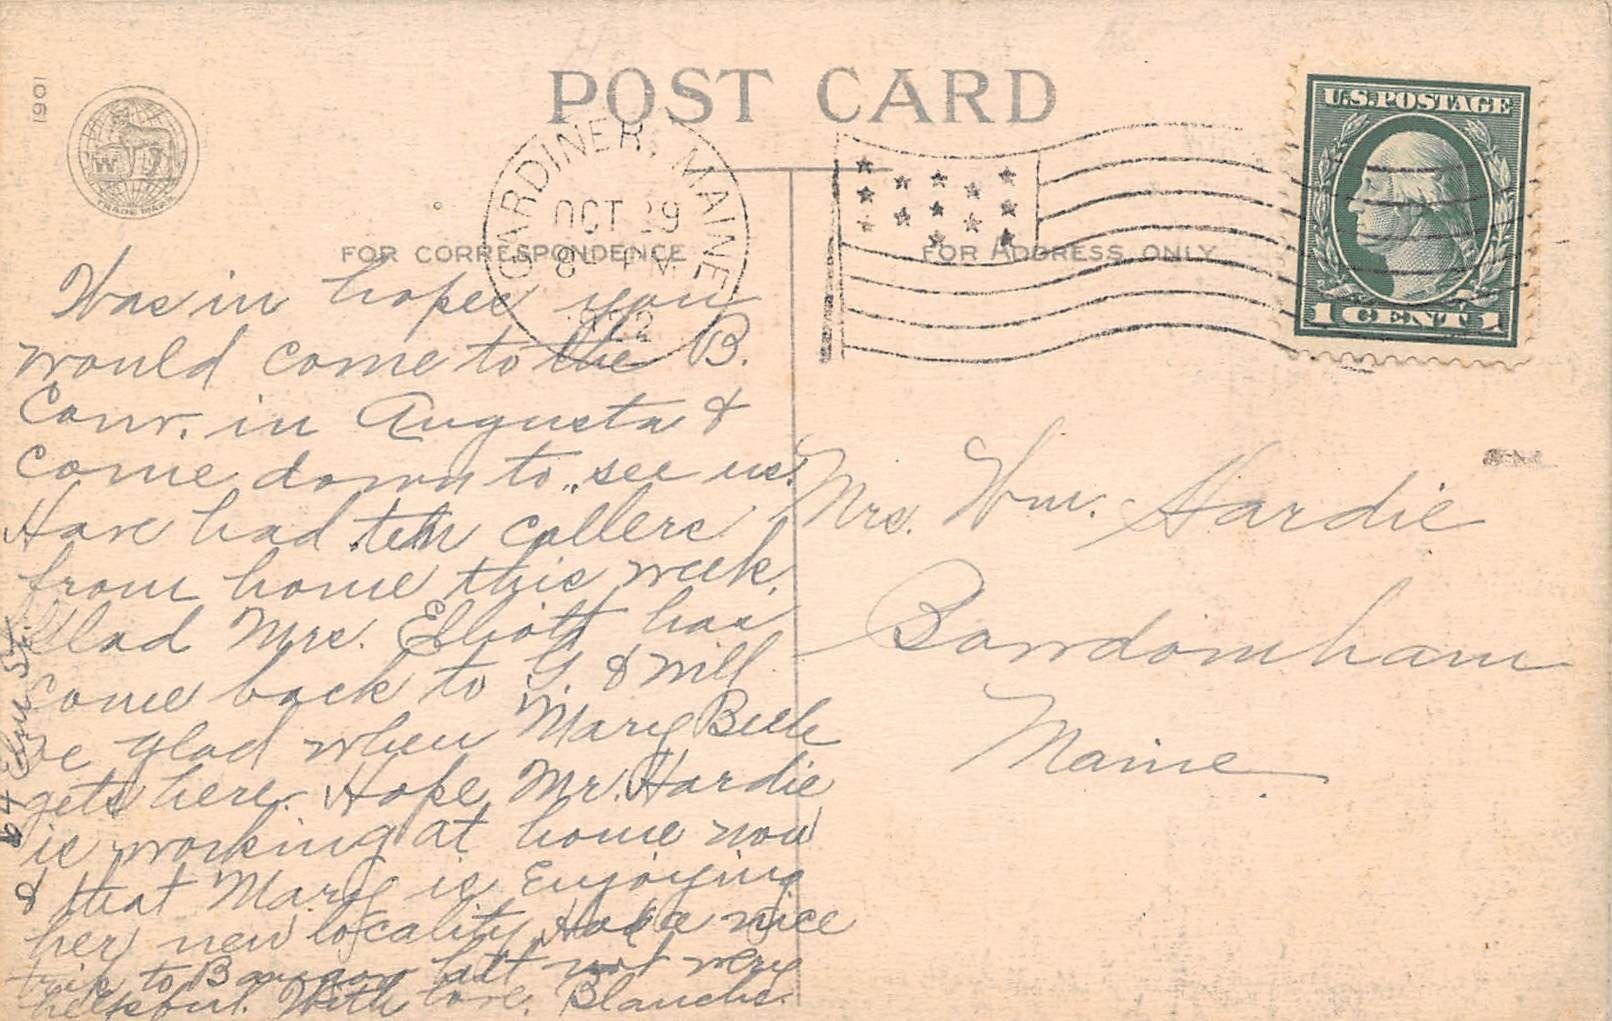 1901
POST CARD
W
TRADE MARK
GARDINER, MAINE
OCT 29
8 - PM
1922
U.S. POSTAGE
1 CENT 1
FOR CORRESPONDENCE
FOR ADDRESS ONLY
Was in hopes you
would come to the B.
Conv. in Augusta &
come down to see us.
Have had ten callers
from home this week.
Glad Mrs. Elliott has
come back to G. & will
be glad when Mary Belle
gets here. Hope Mr. Hardie
is working at home now
& that Mary is enjoying
her new locality. Had a nice
trip to Bangor but not very
helpful. With love, Blanche.
64 Elm St.
Mrs. Wm. Hardie
Bowdoinham
Maine.